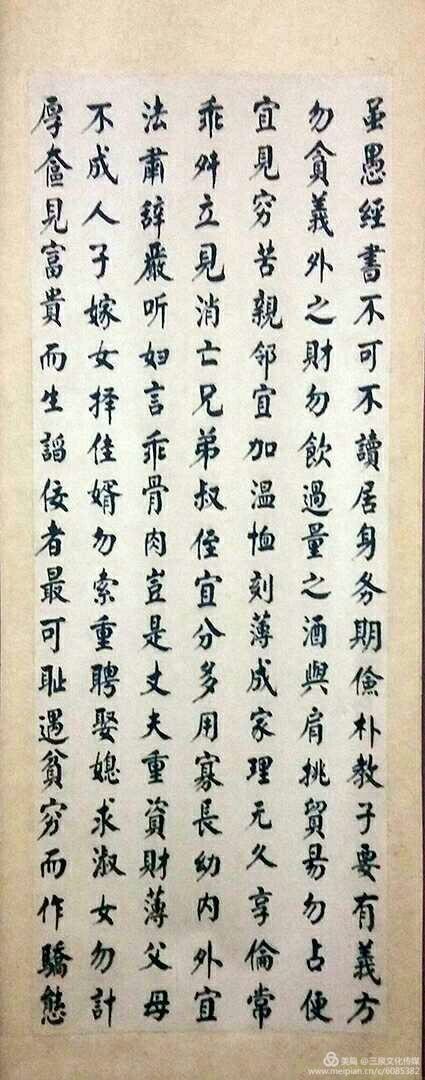 虽愚經書不可不讀居身务期儉朴教子要有義方
勿貪義外之財勿飲過量之酒與肩挑貿易勿占便
宜見穷苦親邻宜加温恤刻薄成家理无久享倫常
乖舛立見消亡兄弟叔侄宜分多用寡長幼内外宜
法肅辭嚴听妇言乖骨肉豈是丈夫重資財薄父母
不成人子嫁女择佳婿勿索重聘娶媳求淑女勿計
厚奩見富貴而生諂佞者最可耻遇貧穷而作驕態
美篇 @三泉文化传媒
www.meipian.cn/c/6085382